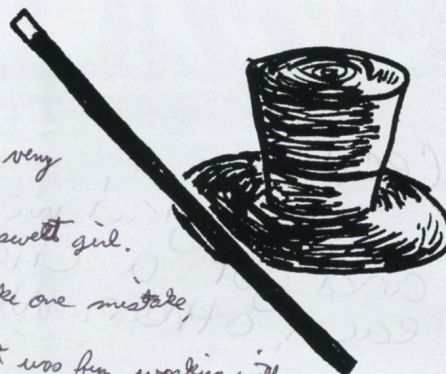 very
swett girl.
ke one mistake,
t was fun working with